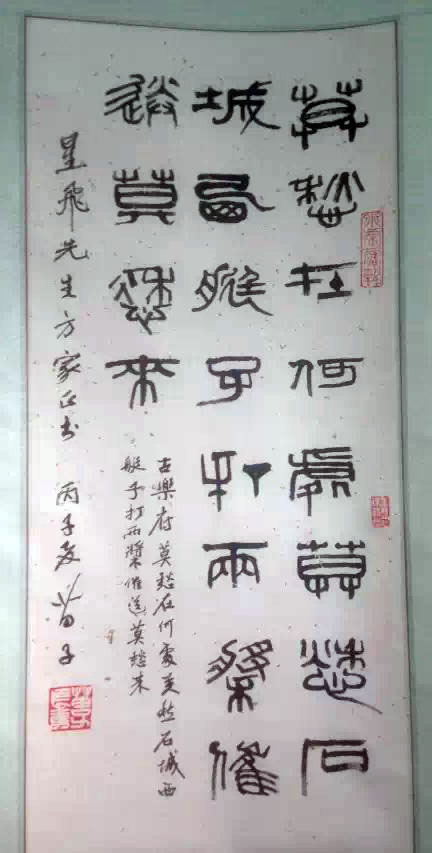 莫愁在何處莫愁石
城西艇子打兩槳催
送莫愁來
古樂府莫愁在何處莫愁石城西
艇子打兩槳催送莫愁來
星飛先生方家正書 丙子歲黃苗子